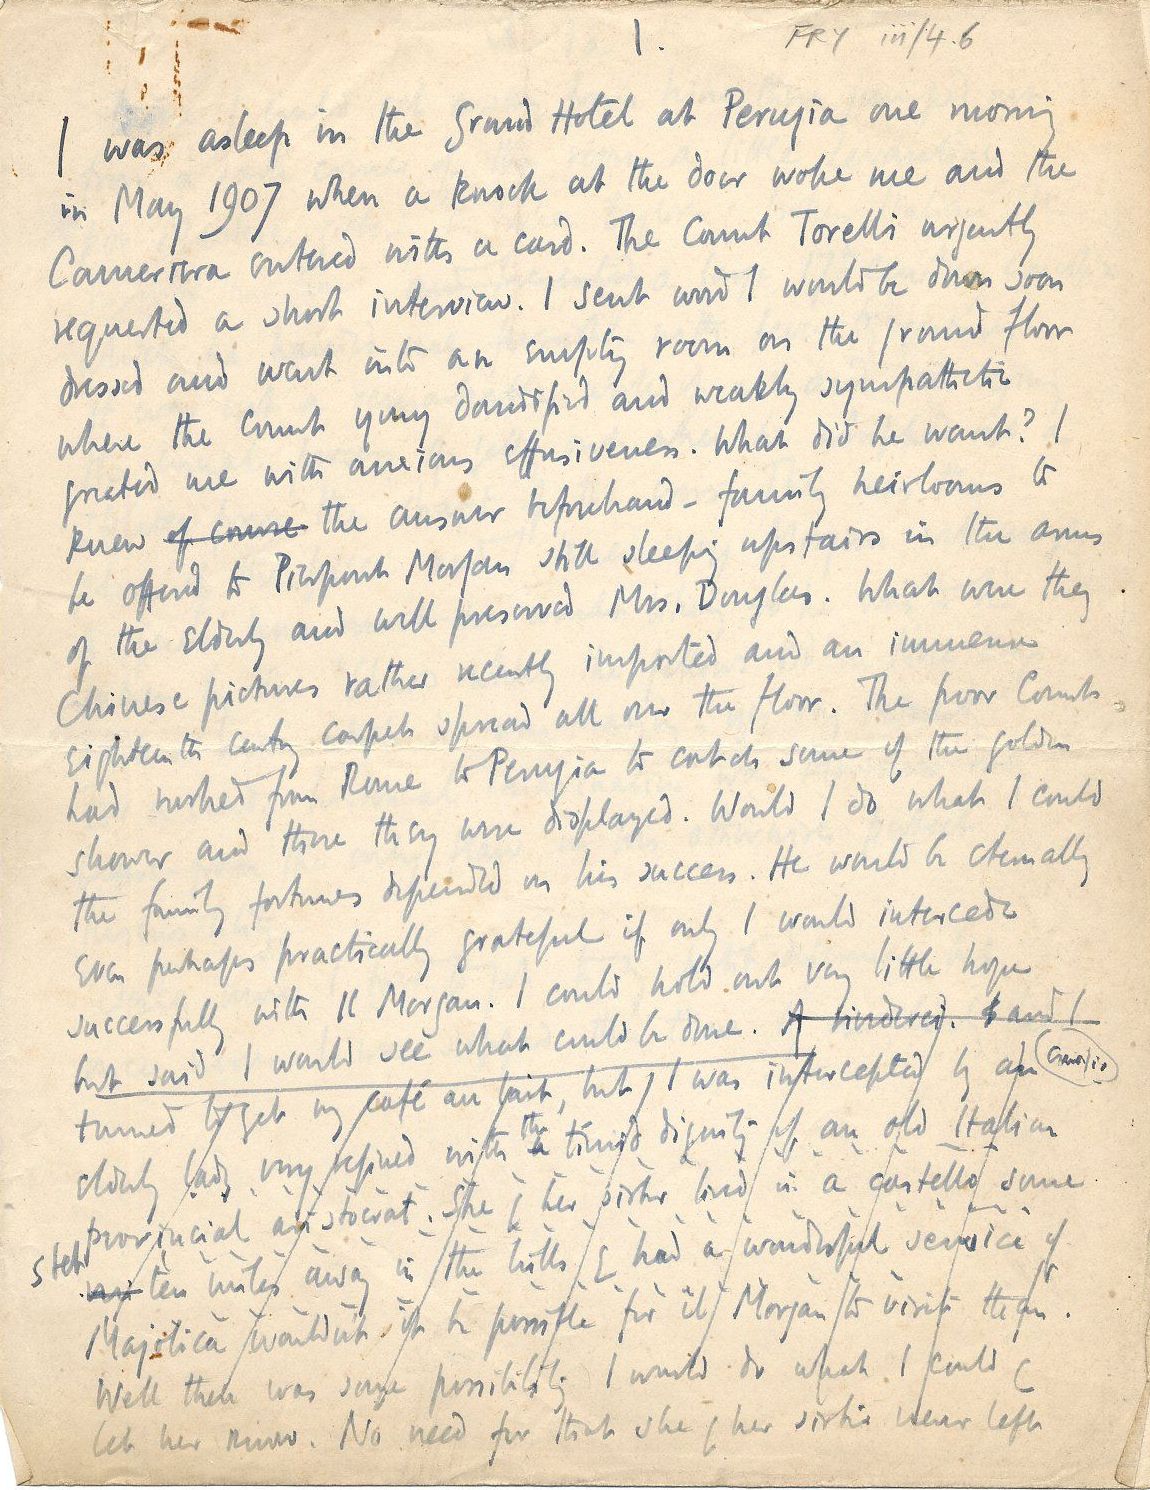 1.
FRY iii/4.6
I was asleep in the Grand Hotel at Perugia one morning
in May 1907 when a knock at the door woke me and the
Cameriera entered with a card. The Count Torelli urgently
requested a short interview. I sent word I would be down soon
dressed and went into an empty room on the ground floor
where the Count young dandified and weakly sympathetic
greeted me with anxious effusiveness. What did he want? I
knew of course the answer beforehand - family heirlooms to
be offered to Pierpont Morgan still sleeping upstairs in the arms
of the Elderly and well preserved Mrs. Douglas. What were they
Chinese pictures rather recently imported and an immense
eighteenth century carpet spread all over the floor. The poor Count
had rushed from Rome to Perugia to catch some of the golden
shower and there they were displayed. Would I do what I could
the family fortunes depended on his success. He would be eternally
even perhaps practically grateful if only I would intercede
successfully with Il Morgan. I could hold out very little hope
but said I would see what could be done. and I
turned to get my café au lait, but I was intercepted by an
elderly lady very refined with the a timid dignity of an old Italian
provincial aristocrat. She & her sister lived in a castello some
stet ten miles away in the hills & had a wonderful service of
Majolica wouldn't it be possible for il Morgan to visit them.
Well there was some possibility I would do what I could &
let her know. No need for that she & her sister never left